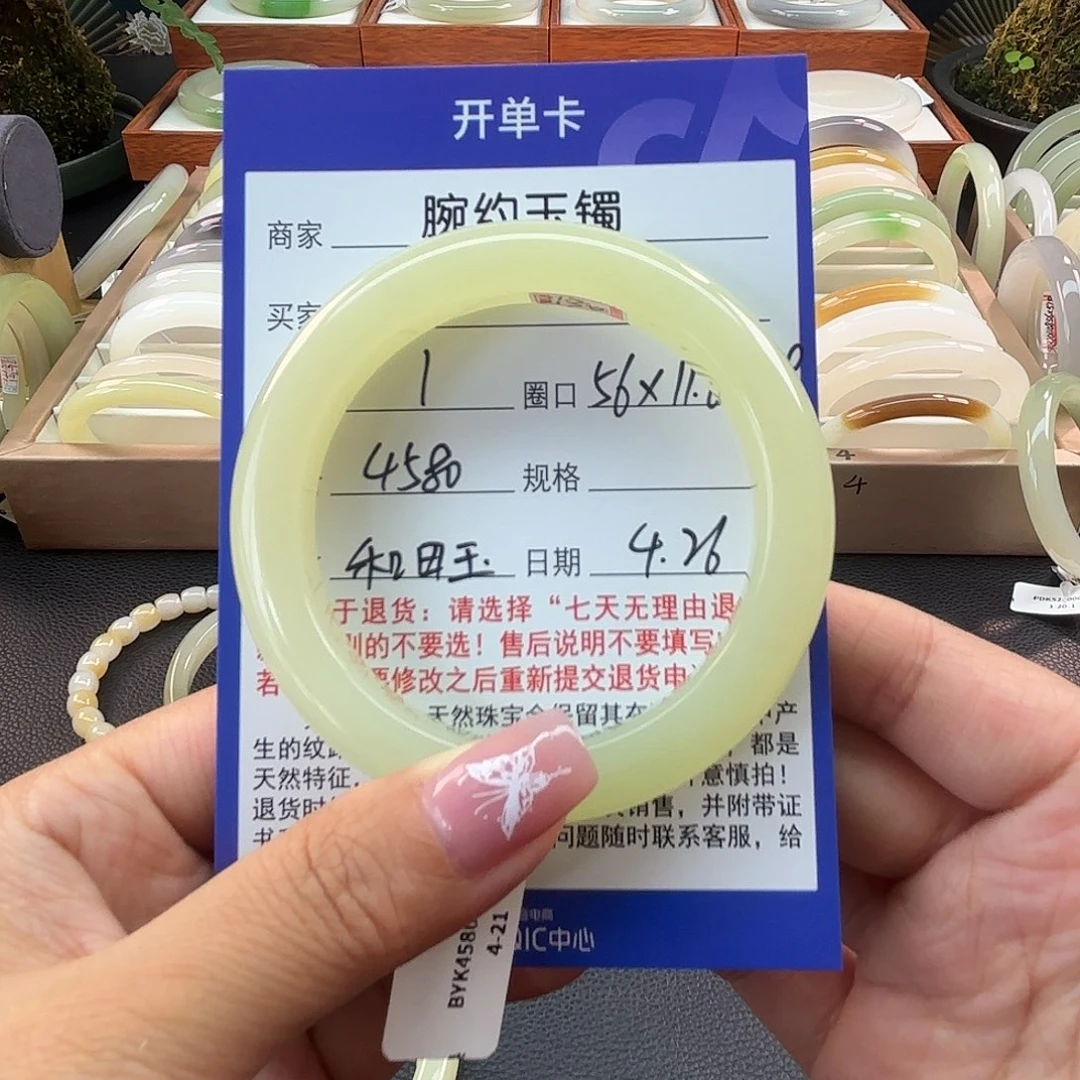 开单卡
商家 腕约玉镯
买家
1 圈口 56×11.
4580 规格
和田玉 日期 4.26
于退货：请选择“七天无理由退
别的不要选！售后说明不要填写
若 要修改之后重新提交退货申
天然珠宝会保留其在 产
生的纹 都是
天然特征， 意慎拍！
退货时 销售，并附带证
书 问题随时联系客服，给
电商
QIC中心
BYK4580
4-21
4
4
PDK52